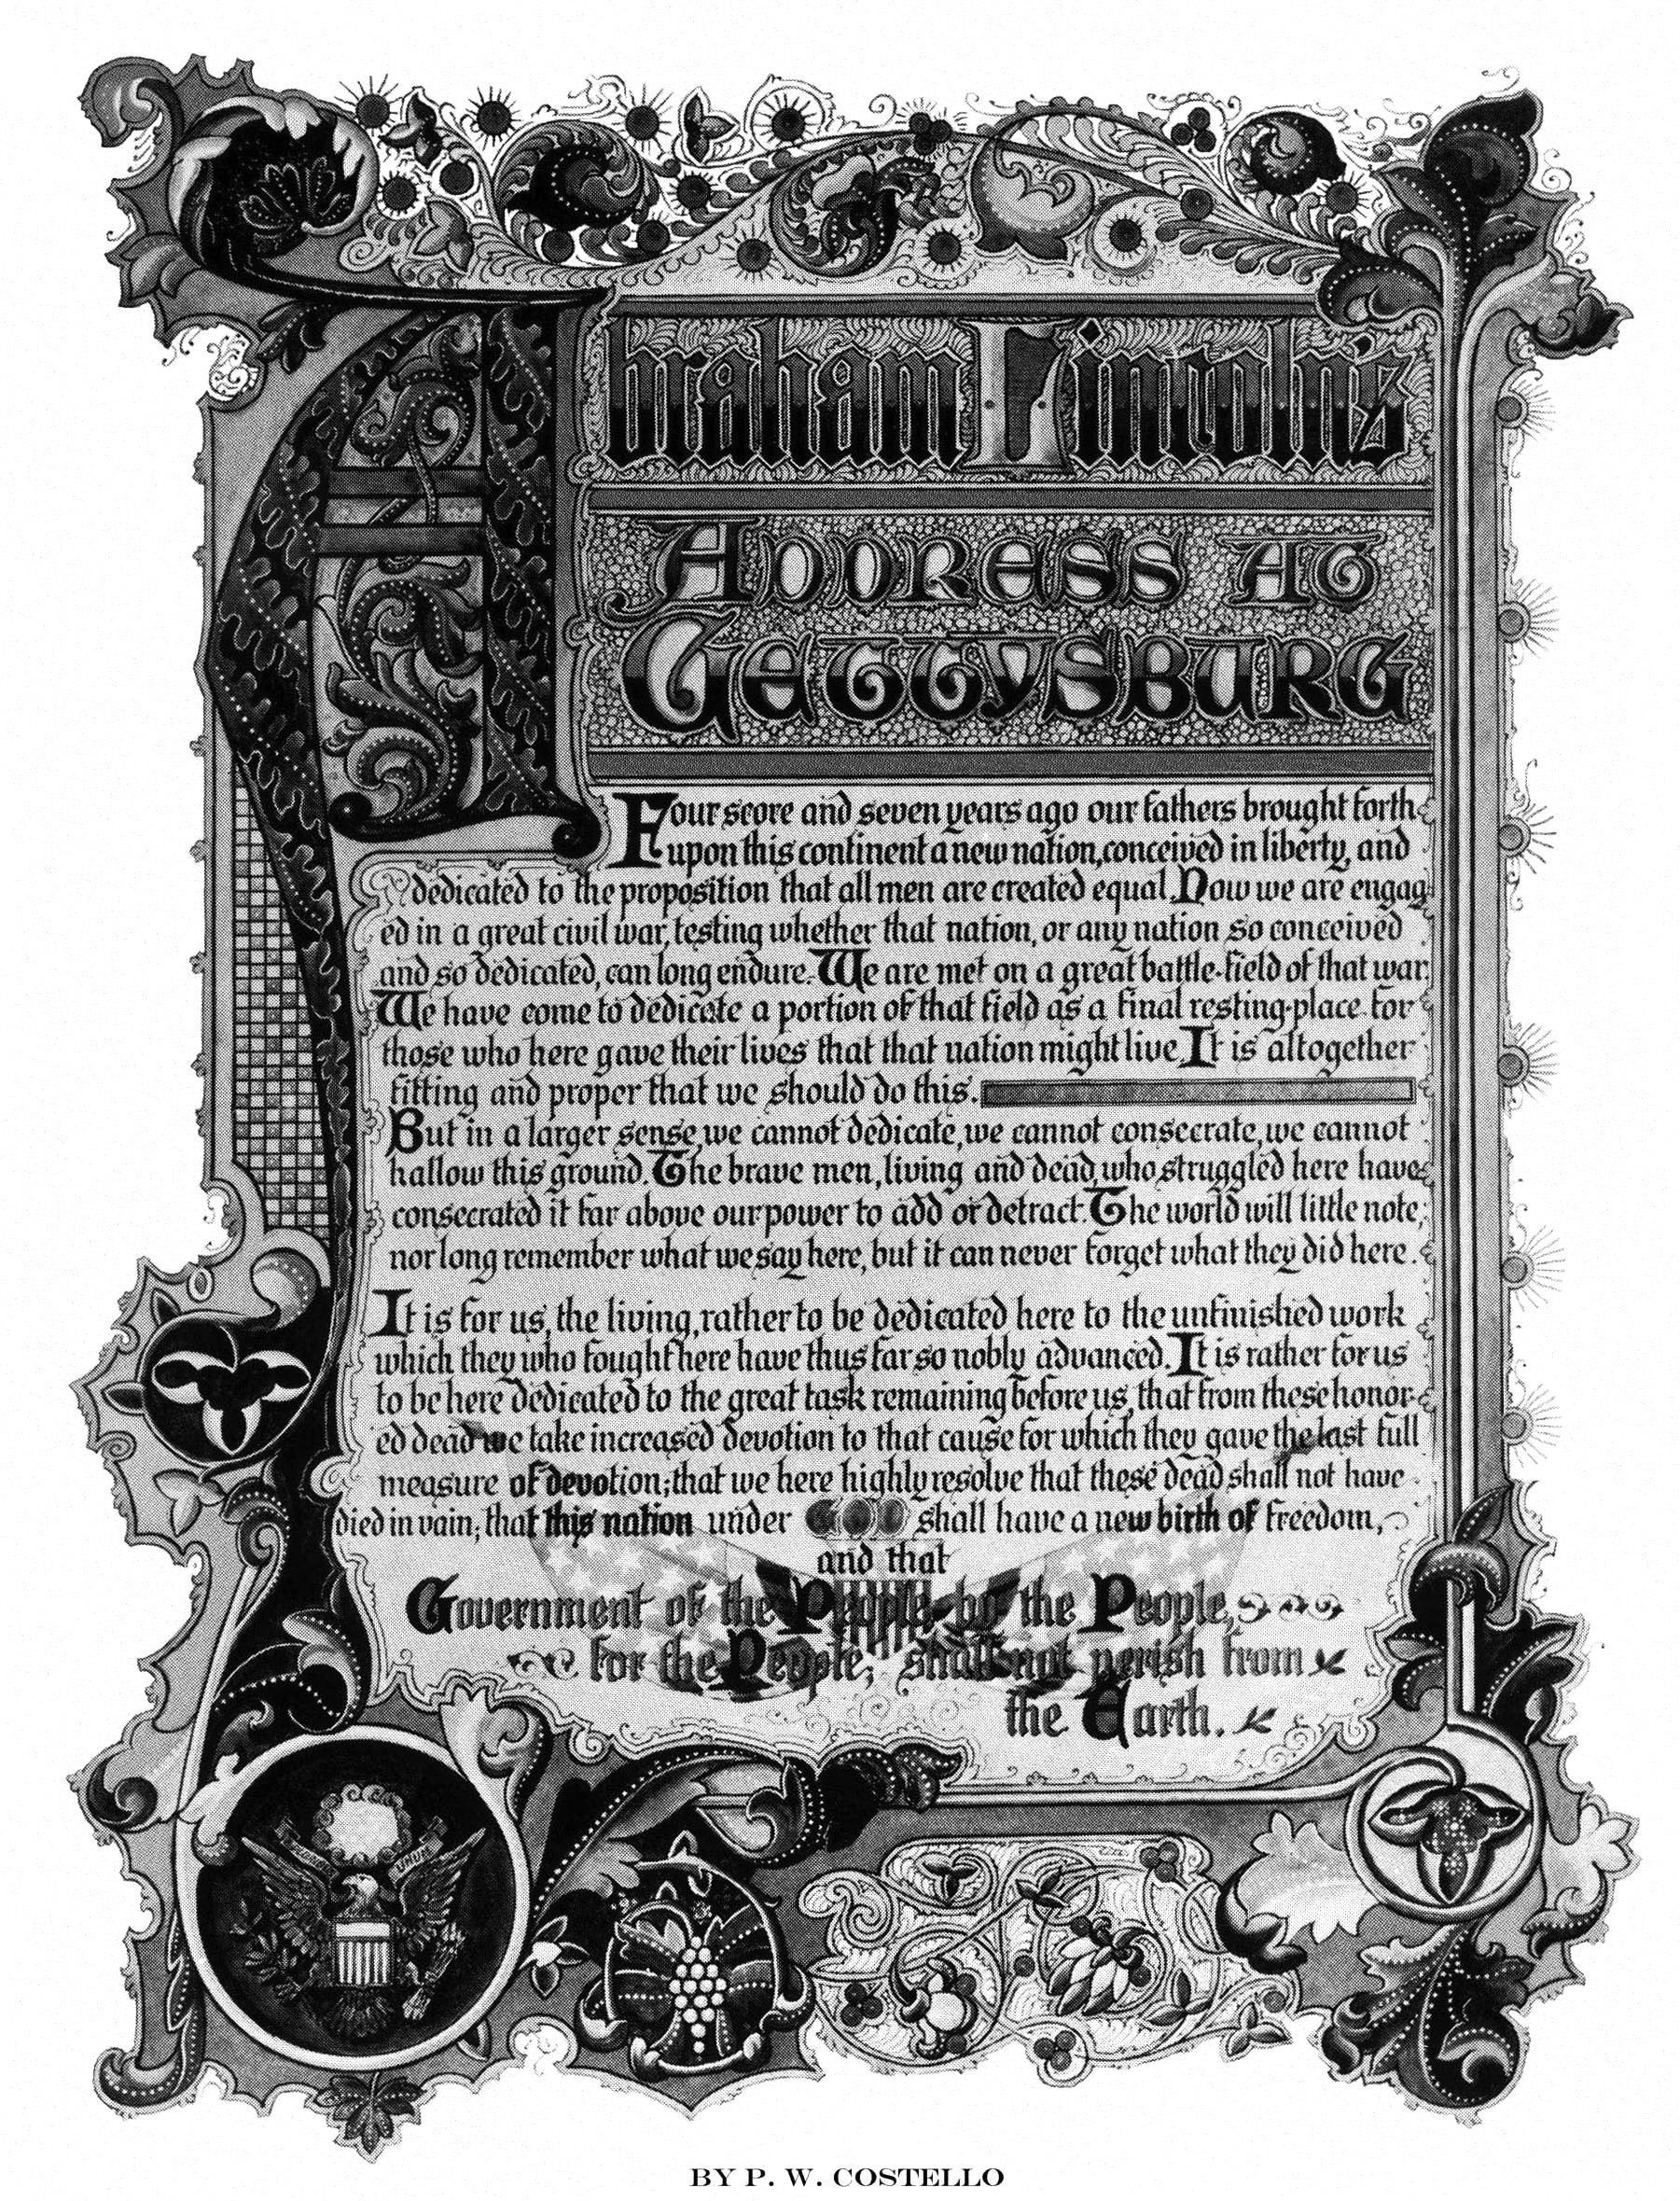 Abraham Lincoln's
Address at
Gettysburg
Four score and seven years ago our fathers brought forth
upon this continent a new nation, conceived in liberty, and
dedicated to the proposition that all men are created equal. Now we are engag
ed in a great civil war, testing whether that nation, or any nation so conceived
and so dedicated, can long endure. We are met on a great battle-field of that war.
We have come to dedicate a portion of that field as a final resting-place for
those who here gave their lives that that nation might live. It is altogether
fitting and proper that we should do this.
But in a larger sense, we cannot dedicate, we cannot consecrate, we cannot
hallow this ground. The brave men, living and dead, who struggled here have
consecrated it far above our power to add or detract. The world will little note,
nor long remember what we say here, but it can never forget what they did here.
It is for us, the living, rather to be dedicated here to the unfinished work
which they who fought here have thus far so nobly advanced. It is rather for us
to be here dedicated to the great task remaining before us, that from these honor-
ed dead we take increased devotion to that cause for which they gave the last full
measure of devotion; that we here highly resolve that these dead shall not have
died in vain; that this nation under GOD shall have a new birth of freedom,
and that
Government of the People, by the People,
for the People, shall not perish from
the Earth.
UNUM
BY P. W. COSTELLO